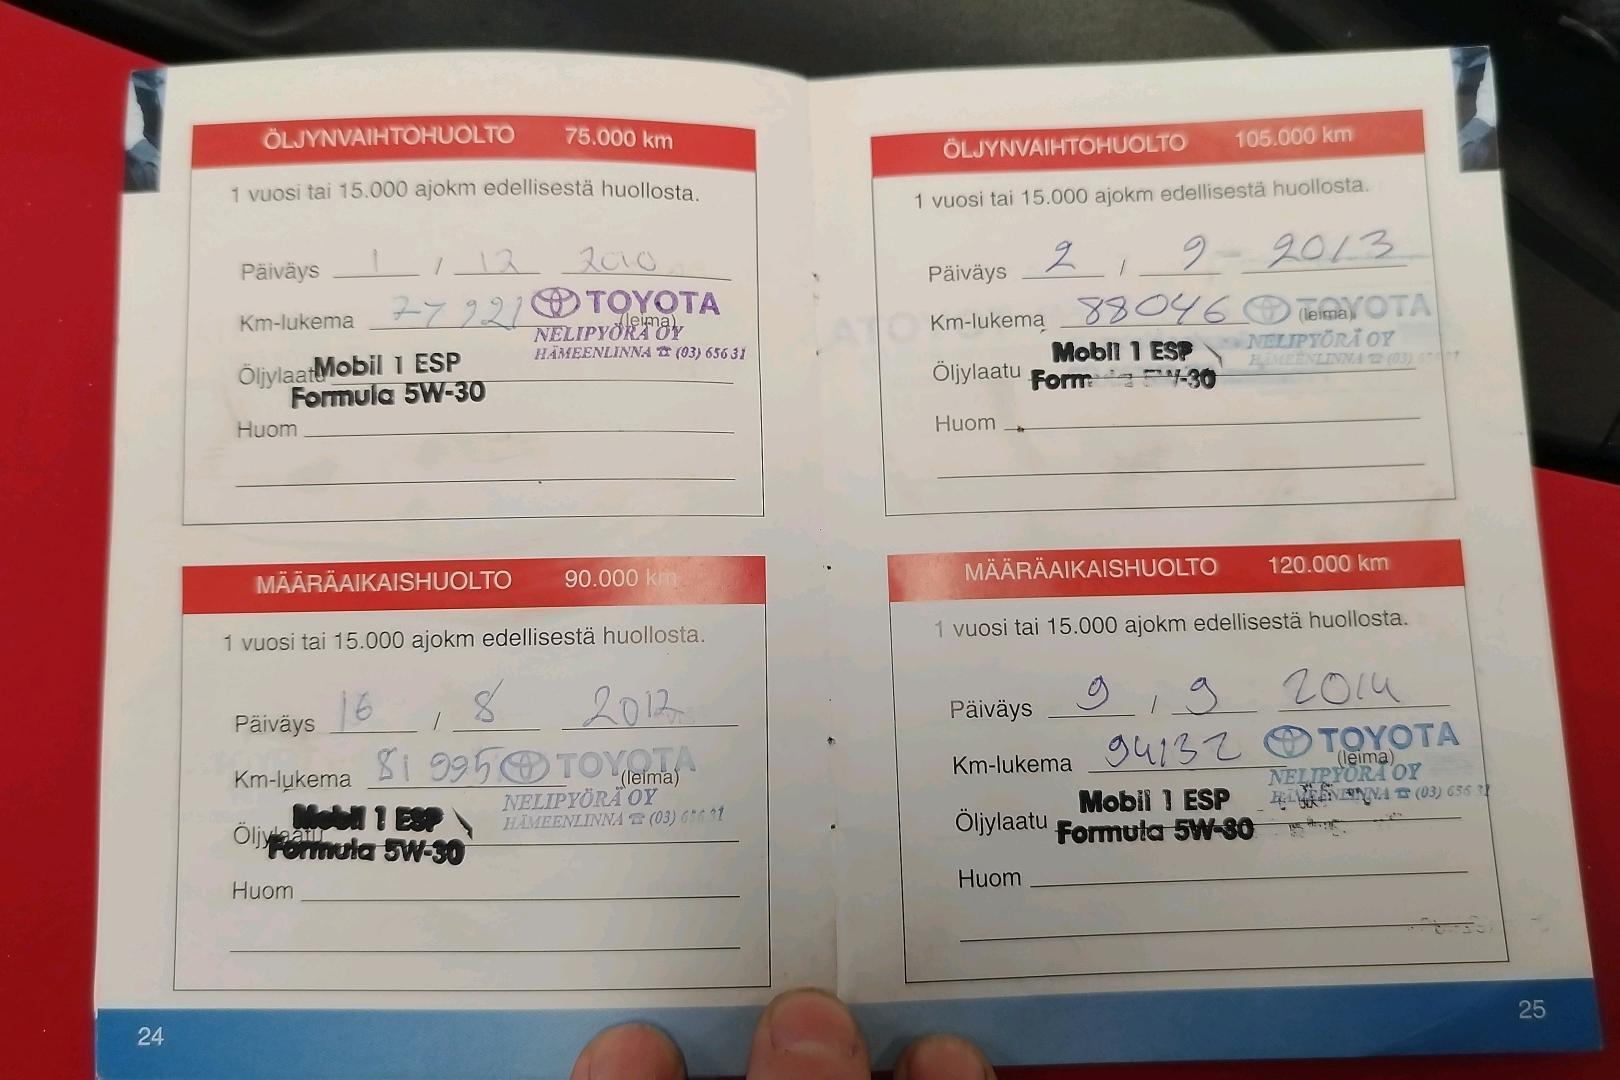 ÖLJYNVAIHTOHUOLTO 75.000 km
1 vuosi tai 15.000 ajokm edellisestä huollosta.
Päiväys 1 / 12 2010
Km-lukema 77921 (leima)
TOYOTA
NELIPYÖRÄ OY
HÄMEENLINNA ☎ (03) 656 31
Öljylaatu Mobil 1 ESP
Formula 5W-30
Huom
MÄÄRÄAIKAISHUOLTO 90.000 km
1 vuosi tai 15.000 ajokm edellisestä huollosta.
Päiväys 16 / 8 2012
Km-lukema 81995 (leima)
TOYOTA
NELIPYÖRÄ OY
HÄMEENLINNA ☎ (03) 656 31
Öljylaatu Mobil 1 ESP
Formula 5W-30
Huom
24
ÖLJYNVAIHTOHUOLTO 105.000 km
1 vuosi tai 15.000 ajokm edellisestä huollosta.
Päiväys 2 / 9 2013
Km-lukema 88046 (leima)
TOYOTA
NELIPYÖRÄ OY
HÄMEENLINNA ☎ (03)
Öljylaatu Mobil 1 ESP
Formula 5W-30
Huom
MÄÄRÄAIKAISHUOLTO 120.000 km
1 vuosi tai 15.000 ajokm edellisestä huollosta.
Päiväys 9 / 9 2014
Km-lukema 94132 (leima)
TOYOTA
NELIPYÖRÄ OY
HÄMEENLINNA ☎ (03) 656 31
Öljylaatu Mobil 1 ESP
Formula 5W-30
Huom
25